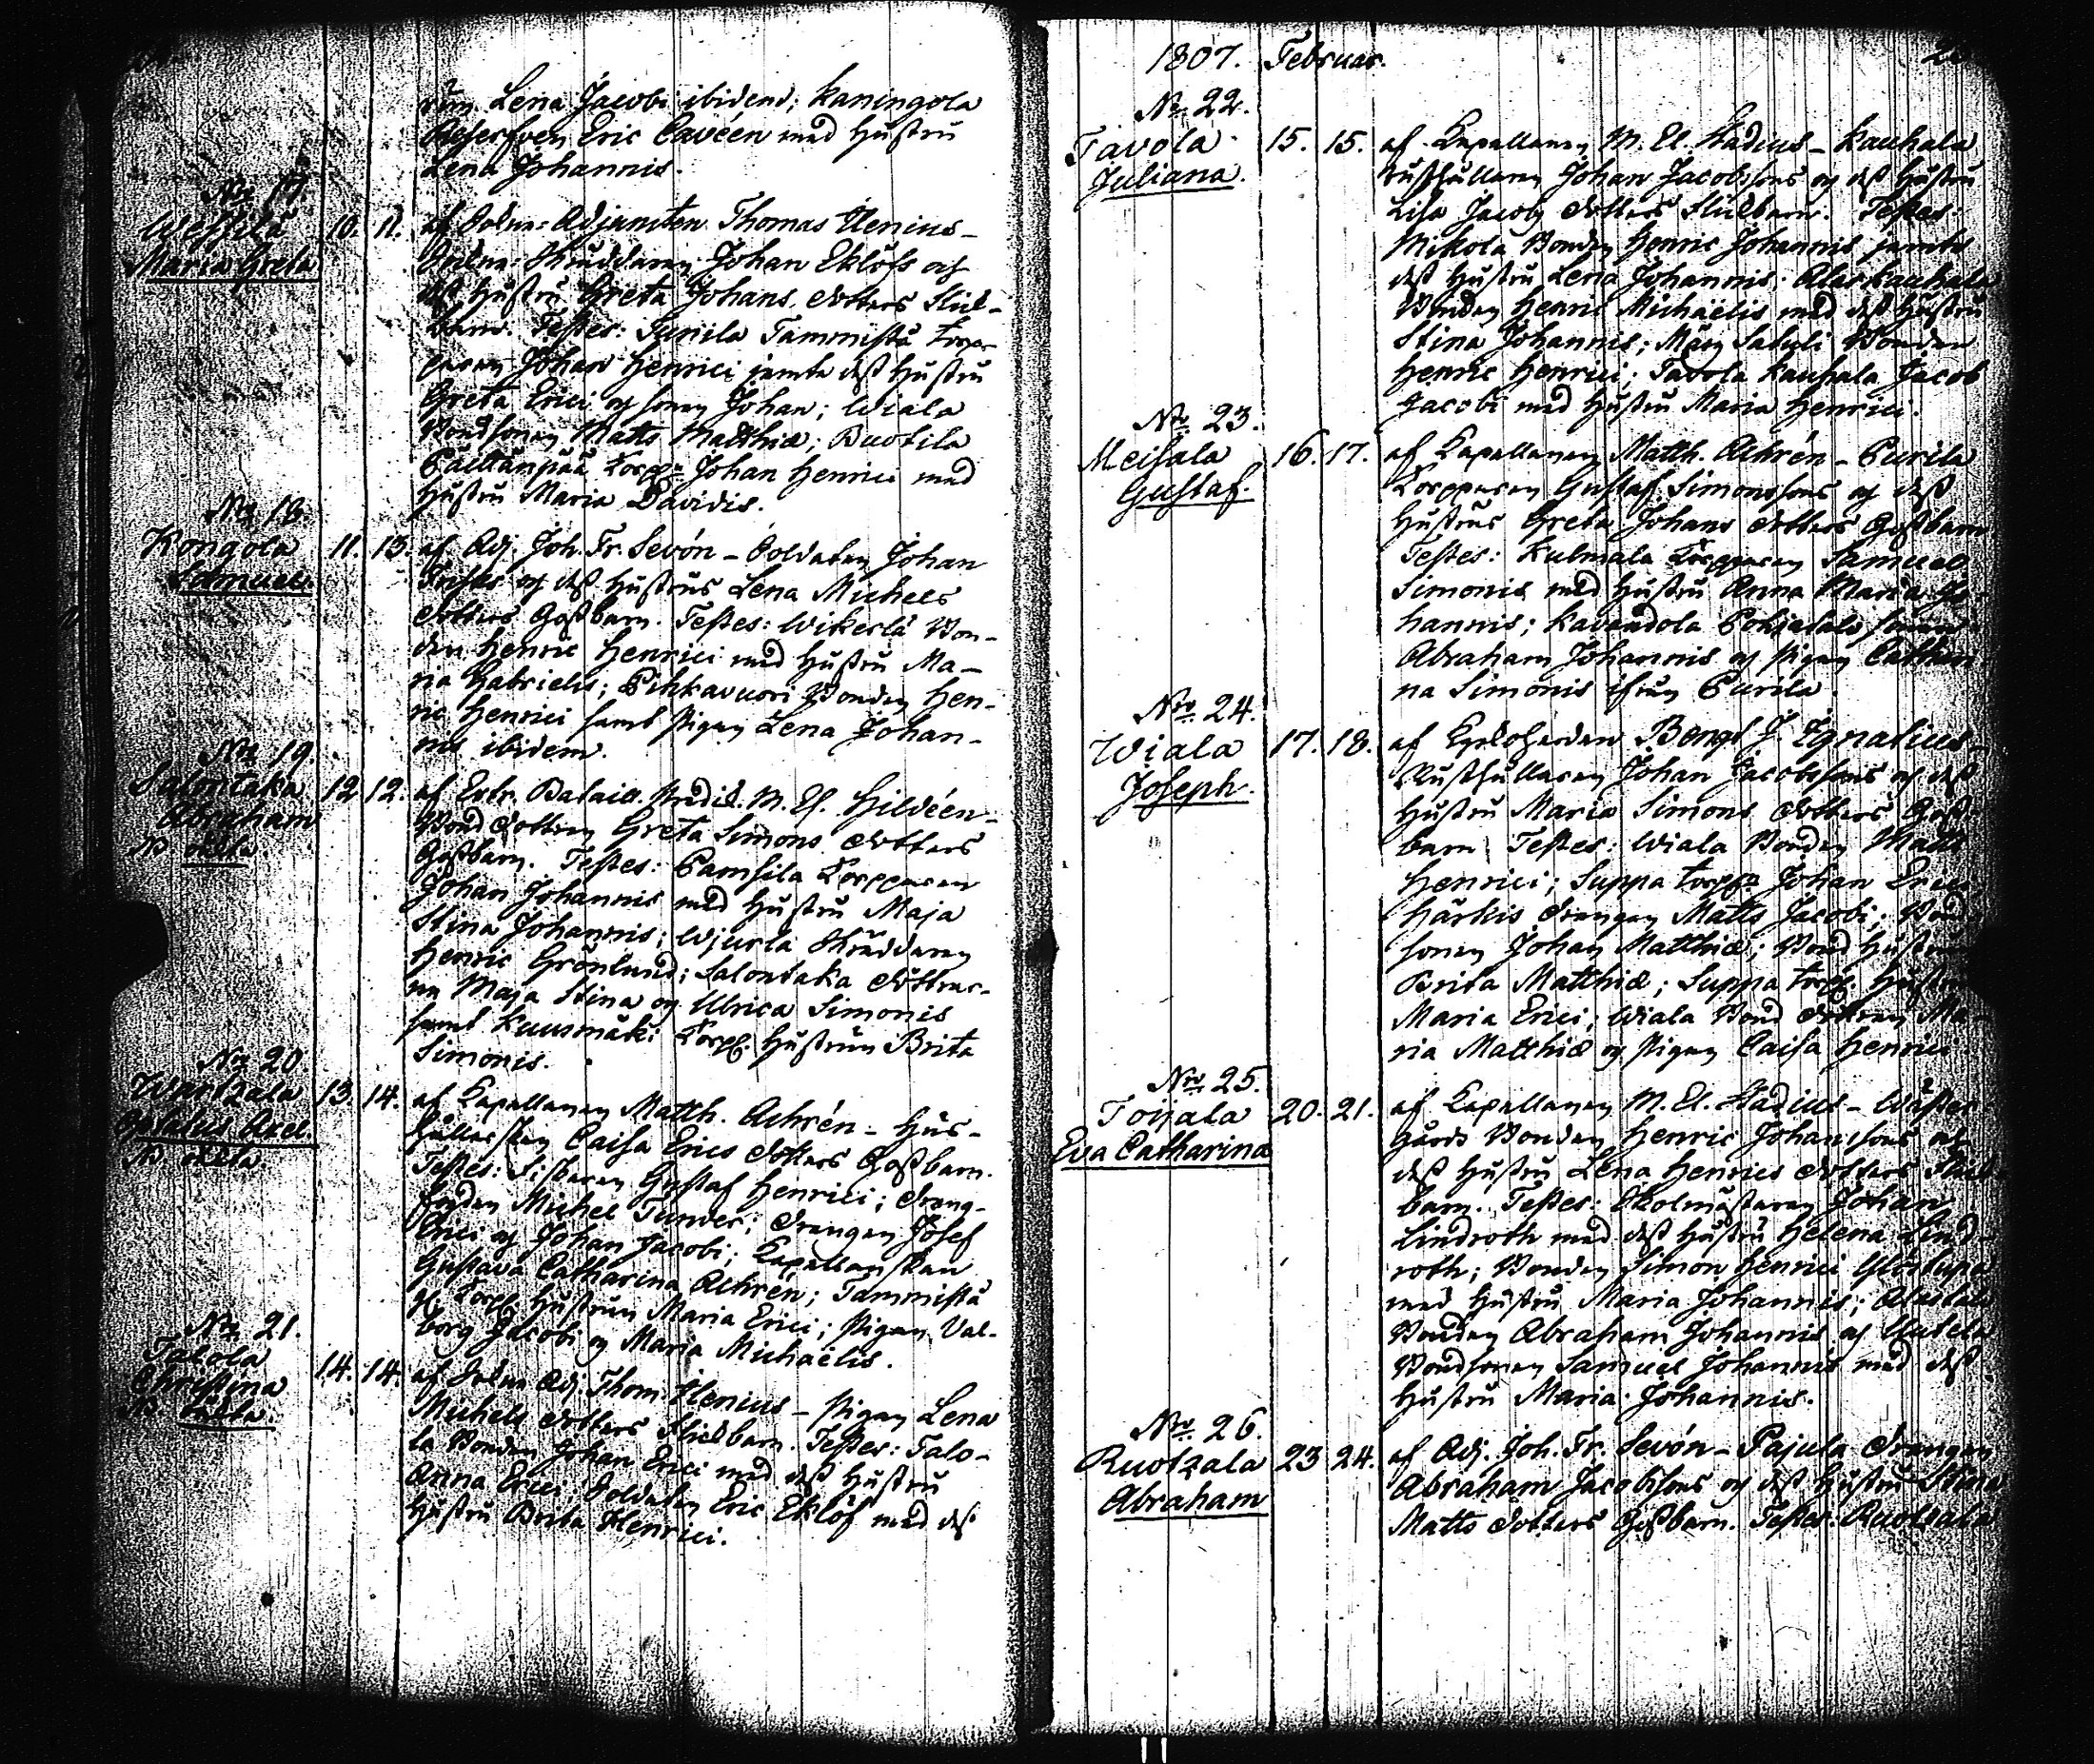 Lena Jacobi ibidem; Kaningola
Eric Cavéen med Hustru
Lena Johannis.
No 17.
Maria Greta
10. 11. af Ordin: Adjuncten Thomas Ilenius –
Johan Eklöfs och
dess Hustru Greta Johans dotters
barn. Testes: Sunila Tammistå Torp-
paren Johan Henrici jemte dess Hustru
Greta Erici och sonen Johan; Wiala
Bondsonen Matts Matthiæ; Ruotila
Torpp: Johan Henrici med
Hustru Maria Davidis.
No 18.
Kongola
Samuel.
11. 13. af Adj. Joh. Fr. Sevón – Soldaten Johan
och dess Hustrus Lena Michels
dotters Gossbarn. Testes: Wikerlä Bon-
den Henric Henrici med Hustru Ma-
ria Gabrielis; Pihkavuori Bonden Hen-
ric Henrici samt Pigan Lena Johan-
nis ibidem.
No 19.
Salontaka
Abraham
NB oäkta
12. 12. af Extr. Batail. Predik. M. El. Hildéen –
Bond dottren Greta Simons dotters
Gossbarn. Testes: Pamsila Torpparen
Johan Johannis med Hustru Maja
Stina Johannis; Wjurla Skräddaren
Henric Grönlund; Salontaka döttrar-
na Maja Stina och Ulrica Simonis
samt Kuusmäki Torpp. Hustrun Brita
Simonis.
No 20
Axel.
NB oäkta.
13. 14. af Kapellanen Matth. Achrén – Hus-
hållerskan Caisa Erics dotters Gossbarn.
Testes: Gustaf Henrici; Dreng-
Michel Tunder; Drengen Josef
Erici och Johan Jacobi; Kapellanskan
Gustava Catharina Achrén; Tammistå
Torpp. Hustrun Maria Erici; Pigan Val-
borg Jacobi och Maria Michaëlis.
No 21.
Talola
Christina
NB oäkta.
14. 14. af Ordin Adj. Thom. Ilenius – Pigan Lena
Michels dotters Flickbarn. Testes: Talo-
la Bonden Johan Erici med dess Hustru
Anna Erici Soldaten Eric Eklöf med dess
Hustru Brita Henrici.
1807. Februar.
No 22.
Tavola
Juliana.
15. 15. af Kapellanen M. El. Stadius – Kauhala
Rusthållaren Johan Jacobssons och dess Hustru
Lisa Jacobs dotters Flickbarn. Testes:
Mikola Bonden Henric Johannis jemte
dess Hustru Lena Johannis. Alaskauhala
Bonden Henric Michaëlis med dess Hustru
Stina Johannis; Satuli Bonden
Henric Henrici; Tavola Kauhala Jacob
Jacobi med Hustru Maria Henrici.
No 23.
Meisala
Gustaf.
16. 17. af Kapellanen Matth. Achrén – Purila
Torpparen Gustaf Simonssons och dess
Hustrus Greta Johans dotters Gossbarn
Testes: Kulmala Torpparen Samuel
Simonis med Hustru Anna Maria Jo-
hannis; Kavandola
Abraham Johannis och Pigan Cathari-
na Simonis ifrån Purila.
No 24.
Wiala
Joseph.
17. 18. af Kyrkoherden Bengt J. Ignatius –
Rusthållaren Johan Jacobssons och dess
Hustru Maria Simons dotters Goss-
barn. Testes: Wiala Bonden Matts
Henrici; Suppa Torpp: Johan Erici
Härkis Drengen Matts Jacobi; Bond-
sonen Johan Matthiæ; Bond Hustrun
Brita Matthiæ; Suppa Torpp. Hustrun
Maria Erici; Wiala Bond dottren Ma-
ria Matthiæ och Pigan Caisa Henrici.
No 25.
Toijala
Eva Catharina
20. 21. af Kapellanen M. El. Stadius –
gårds Bonden Henric Johanssons och
dess Hustru Lena Henrics dotters Flick-
barn. Testes: Skolmästaren Johan
Lindroth med dess Hustru Helena Lind-
roth; Bonden Simon Henrici
med Hustru Maria Johannis;
Bonden Abraham Johannis och
Bondsonen Samuel Johannis med dess
Hustru Maria Johannis.
No 26.
Ruotzala
Abraham
23 24. af Adj. Joh. Fr. Sevón – Pajula Drengen
Abraham Jacobssons och dess Hustru Stina
Matts dotters Gossbarn. Testes: Ruotzala